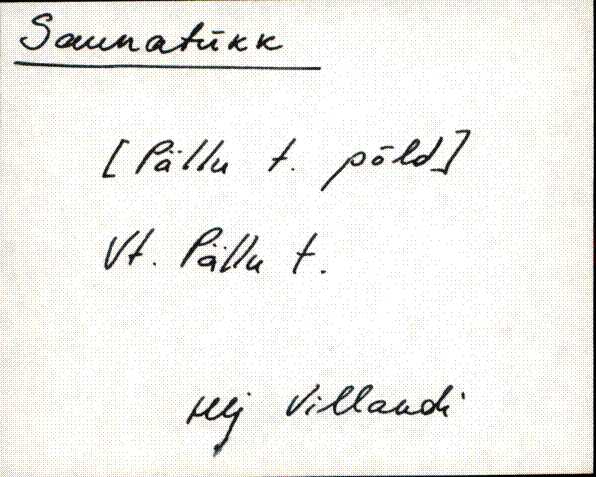 Saunatükk
[Pällu t. põld]
Vt. Pällu t.
Hlj Villandi